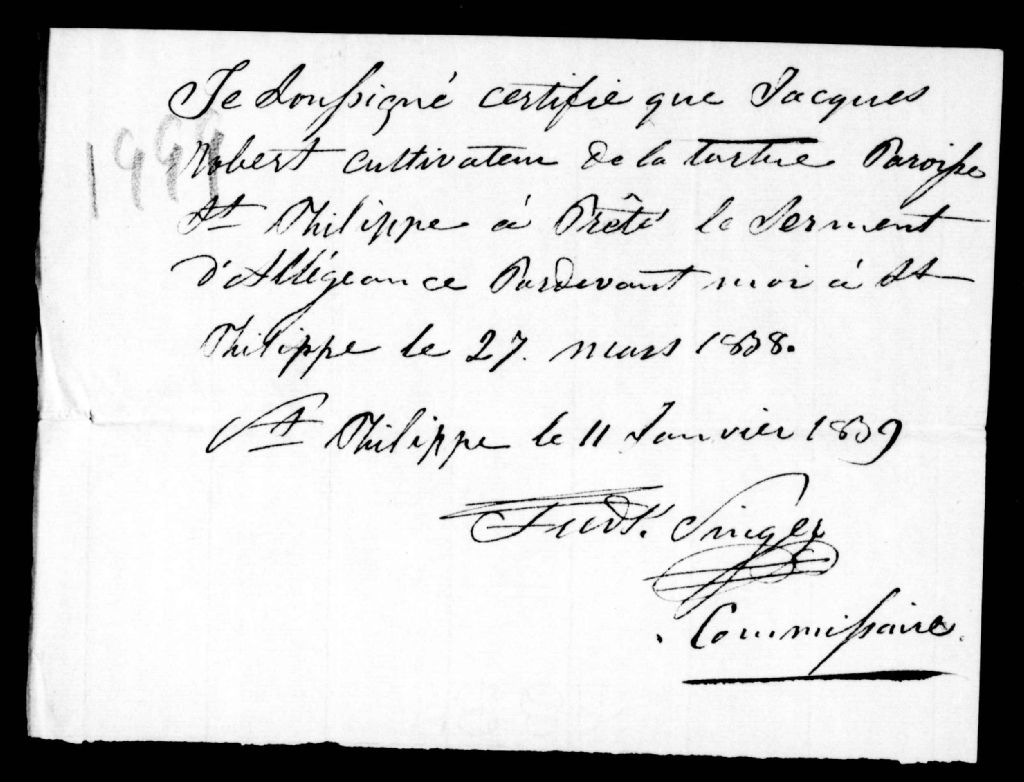 Je Soussigné certifie que Jacques
1999
Robert cultivateur de la tortue Paroisse
St Philippe à Prêté le Serment
d'Allégeance Pardevant moi à St
Philippe le 27. mars 1838.
St Philippe le 11 Janvier 1839
Fredk. Singer
Commissaire.